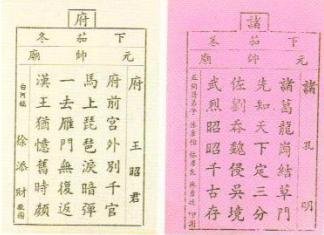 府
下茄冬
元帥廟
府 王昭君
府前宮外別千官
馬上琵琶淚暗彈
一去雁門無復返
漢王猶憶舊時顏
白河鎮 徐添財 敬獻
諸
下茄冬
元帥廟
諸 孔明
諸葛龍崗結草門
先知天下定三分
佐劉吞魏侵吳境
武烈昭昭千古存